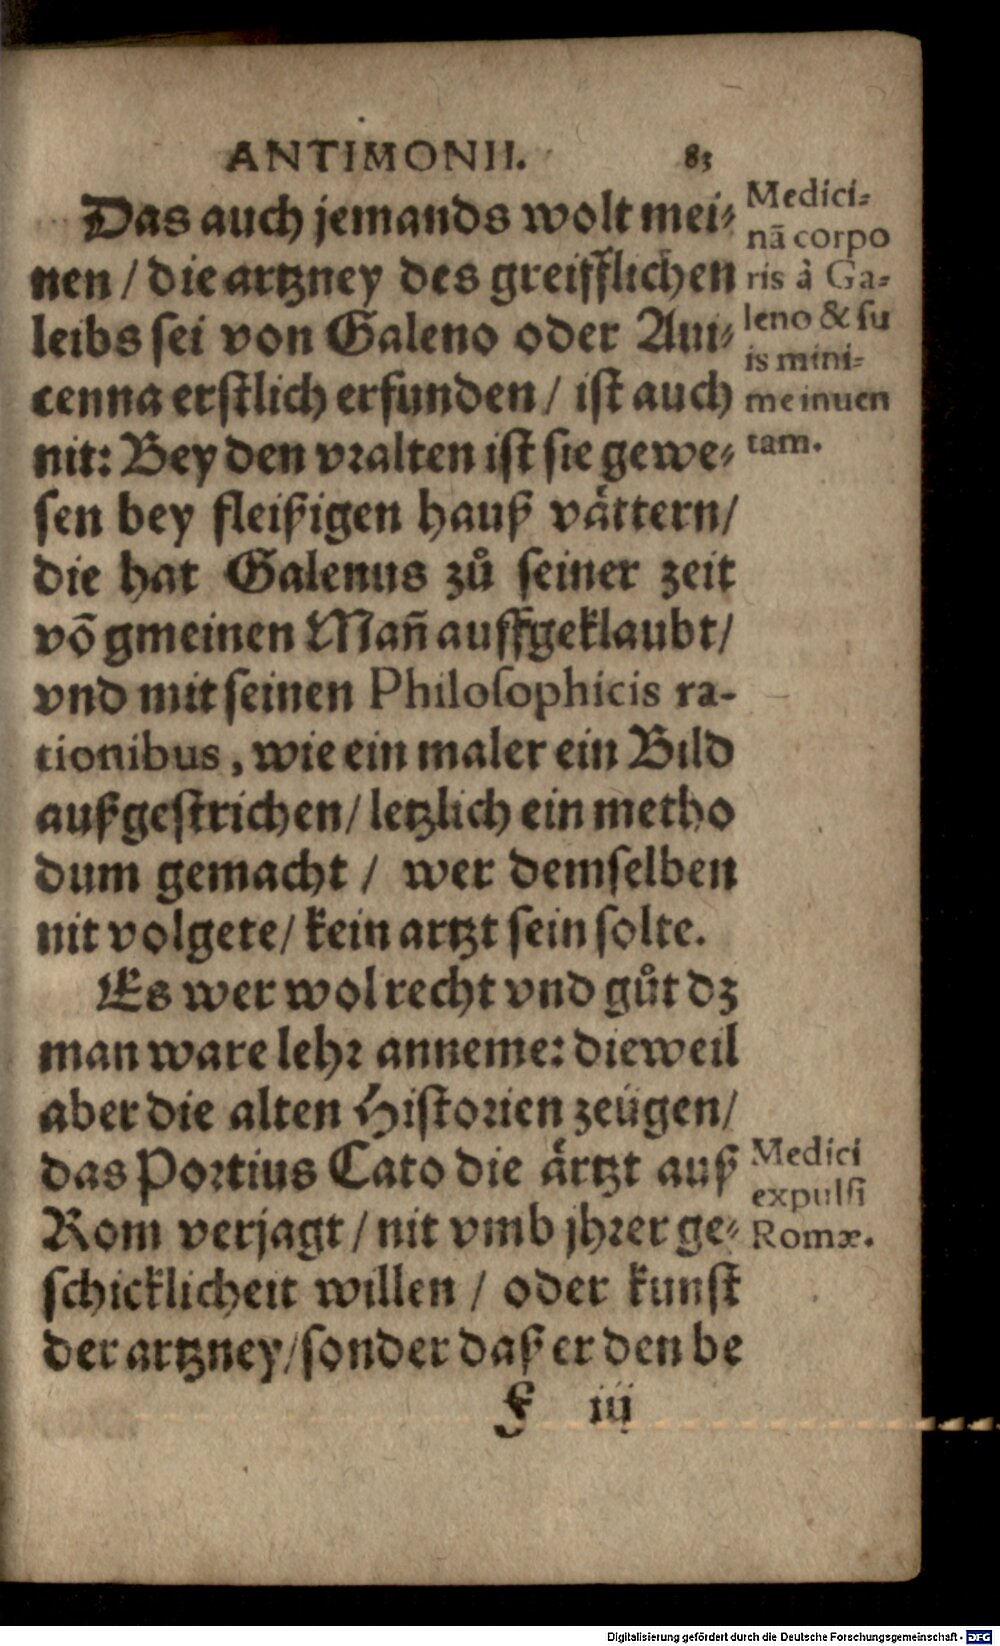 ANTIMONII. 83
Das auch jemands wolt mei⸗
nen / die artzney des greifflichen
leibs sei von Galeno oder Aui⸗
cenna erstlich erfunden / ist auch
nit: Bey den vralten ist sie gewe⸗
sen bey fleißigen hauß vättern/
die hat Galenus zů seiner zeit
võ gmeinen Mañ auffgeklaubt/
vnd mit seinen Philosophicis ra-
tionibus, wie ein maler ein Bild
außgestrichen/ letzlich ein metho
dum gemacht / wer demselben
nit volgete/ kein artzt sein solte.
Es wer wol recht vnd gůt dz
man ware lehr anneme: dieweil
aber die alten Historien zeügen/
das Portius Cato die ärtzt auß
Rom verjagt / nit vmb jhrer ge⸗
schicklicheit willen / oder kunst
der artzney/ sonder daß er den be
F iij
Medici⸗
nã corpo
ris à Ga⸗
leno & su
is mini⸗
me inuen
tam.
Medici
expulsi
Romæ.
Digitalisierung gefördert durch die Deutsche Forschungsgemeinschaft - DFG